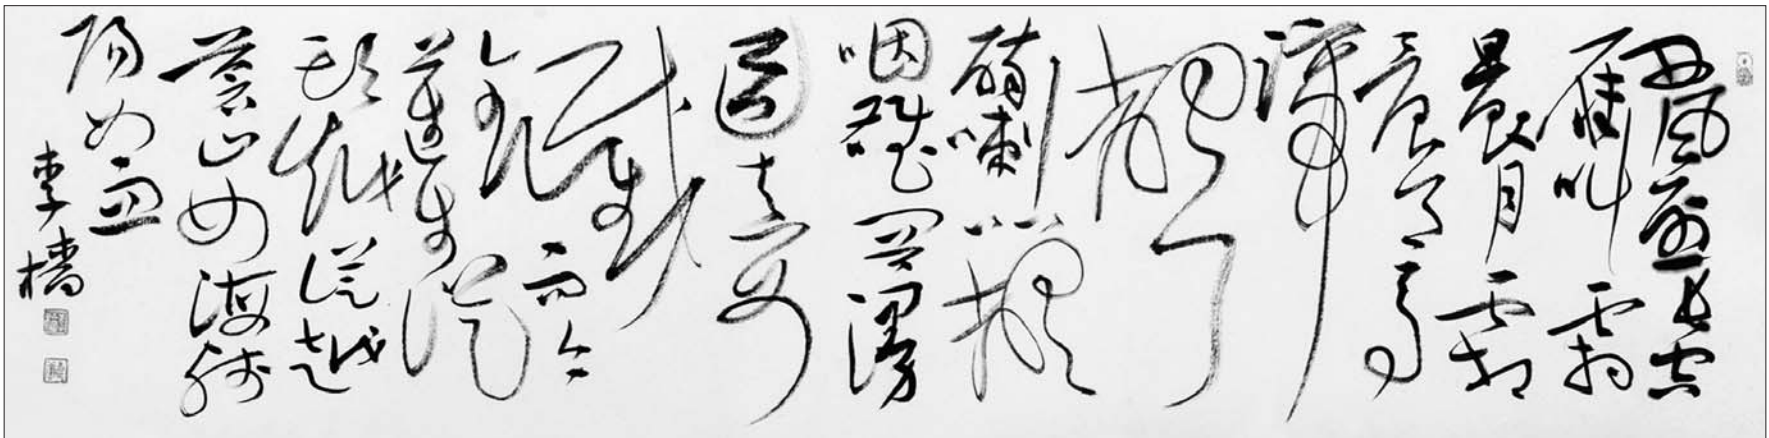 西风烈长空
雁叫霜
晨月霜
晨月马
蹄
声
碎喇叭声
咽雄关漫
道真如
铁
而今
迈步从
头越从头越
苍山如海残
阳如血
李樯